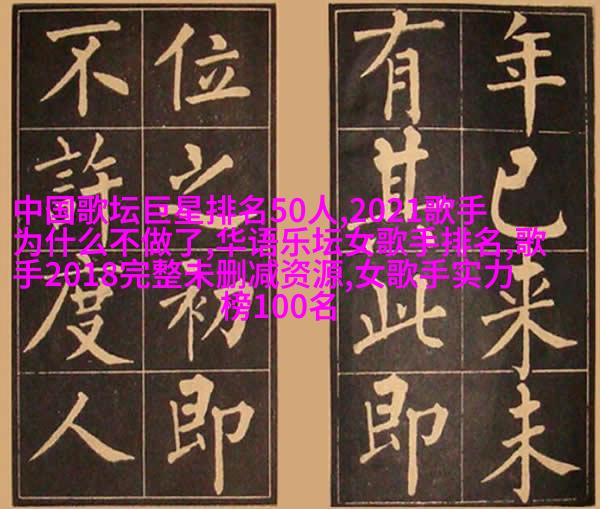 年已来未
有其此即
位之初即
不許度人
中国歌坛巨星排名50人,2021歌手
为什么不做了,华语乐坛女歌手排名,歌
手2018完整未删减资源,女歌手实力
榜100名